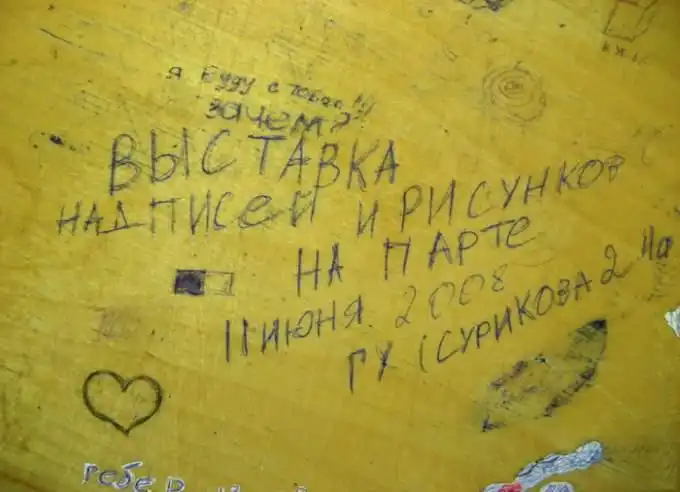 я буду с тобой!!!
зачем?
ВЫСТАВКА
НАДПИСЕЙ И РИСУНКОВ
НА ПАРТЕ
11 ИЮНЯ 2008
ГУ (СУРИКОВА 2
тебе